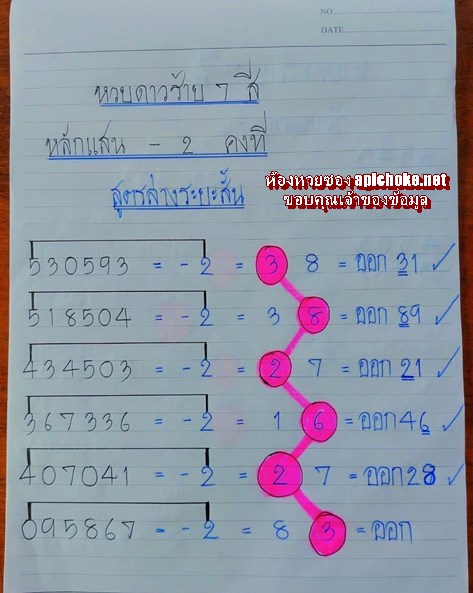 NO.
DATE
หวยดาวร้าย 7 สี
หลักแสน - 2 คงที่
ห้องหวยซอง apichoke.net
ขอบคุณเจ้าของข้อมูล
สูตรล่างระยะสั้น
530593 = - 2 = 3 8 = ออก 31 ✓
518504 = - 2 = 3 8 = ออก 89 ✓
434503 = - 2 = 2 7 = ออก 21 ✓
367336 = - 2 = 1 6 = ออก 46 ✓
407041 = - 2 = 2 7 = ออก 28 ✓
095867 = - 2 = 8 3 = ออก